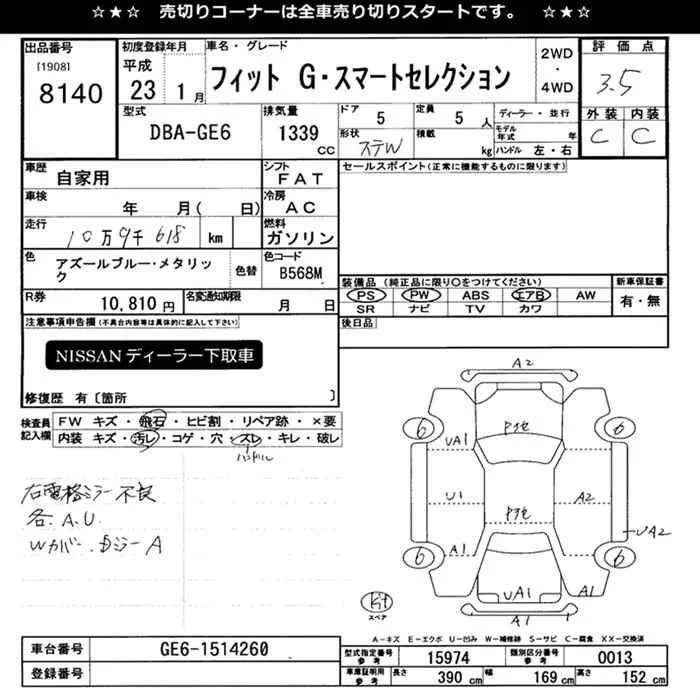 ☆★☆ 売切りコーナーは全車売り切りスタートです。 ☆★☆
出品番号
[1908]
8140
初度登録年月
平成
23 1月
車名・グレード
フィット G・スマートセレクション
2WD
・
4WD
評価点
3.5
外装 内装
C C
型式
DBA-GE6
排気量
1339
CC
ドア
5
定員
5 人
ディーラー・並行
形状
ステW
積載
kg
モデル年式 年
ハンドル 左・右
車歴
自家用
シフト
FAT
セールスポイント(正常に機能するものに限ります)
車検
年 月( 日)
冷房
AC
走行
10万9千618 km
燃料
ガソリン
色
アズールブルー・メタリック
色替
色コード
B568M
装備品 (純正品に限り○をつけてください)
新車保証書
PS PW ABS エアB AW
有・無
SR ナビ TV カワ
R券
10,810円
名変通知期限
月 日
後日品
注意事項申告欄(不具合内容等は具体的に記入して下さい)
NISSANディーラー下取車
修復歴 有〔箇所 〕
検査員
記入欄
FW キズ・飛石・ヒビ割・リペア跡・×要
内装 キズ・汚レ・コゲ・穴・スレ・キレ・破レ
ハンドル
右電格ミラー不良
各.A.U.
A2
6 6
UA1
U1
A2
UA2
A1
6 6
UA1
A1
A1
スペア
A-キズ E-エクボ U-凹み W-補修跡 S-サビ C-腐食 XX-交換済
車台番号
GE6-1514260
登録番号
型式指定番号
参考
15974
類別区分番号
参考
0013
車庫証明用
参考
長さ 390 cm
幅 169 cm
高さ 152 cm